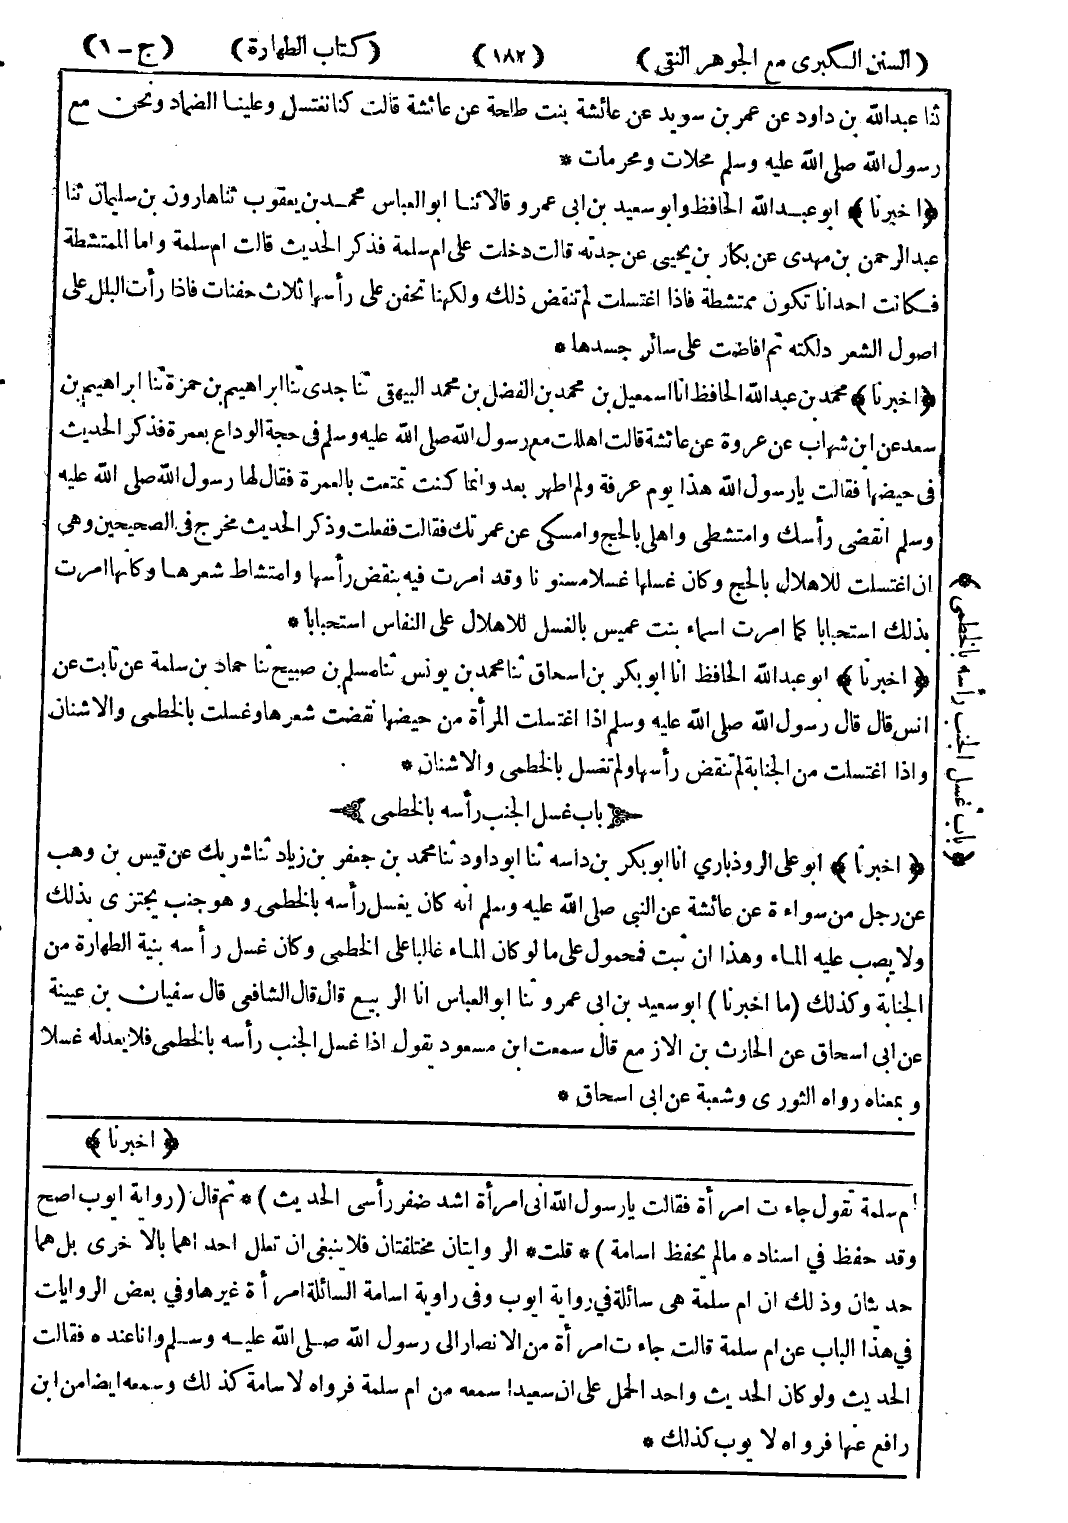 (السنن الكبرى مع الجوهر النقى) (١٨٢) (كتاب الطهارة) (ج-١)
ثنا عبدالله بن داود عن عمر بن سويد عن عائشة بنت طلحة عن عائشة قالت كنا نغتسل وعلينا الضماد ونحن مع
رسول الله صلى الله عليه وسلم محلات ومحرمات *
﴿اخبرنا﴾ ابو عبدالله الحافظ وابو سعيد بن ابى عمرو قالا ثنا ابو العباس محمد بن يعقوب ثنا هارون بن سليمان ثنا
عبد الرحمن بن مهدى عن بكار بن يحيى عن جدته قالت دخلت على ام سلمة فذكر الحديث قالت ام سلمة واما الممتشطة
فكانت احدانا تكون ممتشطة فاذا اغتسلت لم تنقض ذلك ولكنها تحفن على رأسها ثلاث حفنات فاذا رأت البلل على
اصول الشعر دلكته ثم افاضت على سائر جسدها *
﴿اخبرنا﴾ محمد بن عبدالله الحافظ انا اسمعيل بن محمد بن الفضل بن محمد البيهقى ثنا جدى ثنا ابراهيم بن حمزة ثنا ابراهيم بن
سعد عن ابن شهاب عن عروة عن عائشة قالت اهللت مع رسول الله صلى الله عليه وسلم فى حجة الوداع بعمرة فذكر الحديث
فى حيضها فقالت يا رسول الله هذا يوم عرفة ولم اطهر بعد وانما كنت تمتعت بالعمرة فقال لها رسول الله صلى الله عليه
وسلم انقضى رأسك وامتشطى واهلى بالحج وامسكى عن عمرتك فقالت ففعلت وذكر الحديث مخرج فى الصحيحين وهى
ان اغتسلت للاهلال بالحج وكان غسلها غسلا مسنونا وقد امرت فيه بنقض رأسها وامتشاط شعرها وكأنها امرت
بذلك استحبابا كما امرت اسماء بنت عميس بالغسل للاهلال على النفاس استحبابا *
﴿اخبرنا﴾ ابو عبدالله الحافظ انا ابو بكر بن اسحاق ثنا محمد بن يونس ثنا مسلم بن صبيح ثنا حماد بن سلمة عن ثابت عن
انس قال قال رسول الله صلى الله عليه وسلم اذا اغتسلت المرأة من حيضها نقضت شعرها وغسلت بالخطمى والاشنان
واذا اغتسلت من الجنابة لم تنقض رأسها ولم تغسل بالخطمى والاشنان *
باب غسل الجنب رأسه بالخطمى
﴿اخبرنا﴾ ابو على الروذباري انا ابو بكر بن داسه ثنا ابو داود ثنا محمد بن جعفر بن زياد ثنا شريك عن قيس بن وهب
عن رجل من سواءة عن عائشة عن النبى صلى الله عليه وسلم انه كان يغسل رأسه بالخطمى وهو جنب يجتزى بذلك
ولا يصب عليه الماء وهذا ان ثبت فمحمول على ما لو كان الماء غالبا على الخطمى وكان غسل رأسه بنية الطهارة من
الجنابة وكذلك (ما اخبرنا) ابو سعيد بن ابى عمرو ثنا ابو العباس انا الربيع قال قال الشافعى قال سفيان بن عيينة
عن ابى اسحاق عن الحارث بن الازمع قال سمعت ابن مسعود يقول اذا غسل الجنب رأسه بالخطمى فلا يعد له غسلا
وبمعناه رواه الثورى وشعبة عن ابى اسحاق *
﴿اخبرنا﴾
ام سلمة تقول جاءت امرأة فقالت يا رسول الله انى امرأة اشد ضفر رأسى الحديث) * ثم قال (رواية ايوب اصح
وقد حفظ في اسناده مالم يحفظ اسامة) * قلت * الروايتان مختلفتان فلا ينبغى ان تعلل احداهما بالاخرى بل هما
حديثان وذلك ان ام سلمة هى سائلة في رواية ايوب وفى راوية اسامة السائلة امرأة غيرها وفي بعض الروايات
في هذا الباب عن ام سلمة قالت جاءت امرأة من الانصار الى رسول الله صلى الله عليه وسلم وانا عنده فقالت
الحديث ولو كان الحديث واحد الحمل على ان سعيدا سمعه من ام سلمة فرواه لاسامة كذلك وسمعه ايضا من ابن
رافع عنها فرواه لايوب كذلك *
﴿باب غسل الجنب رأسه بالخطمى﴾